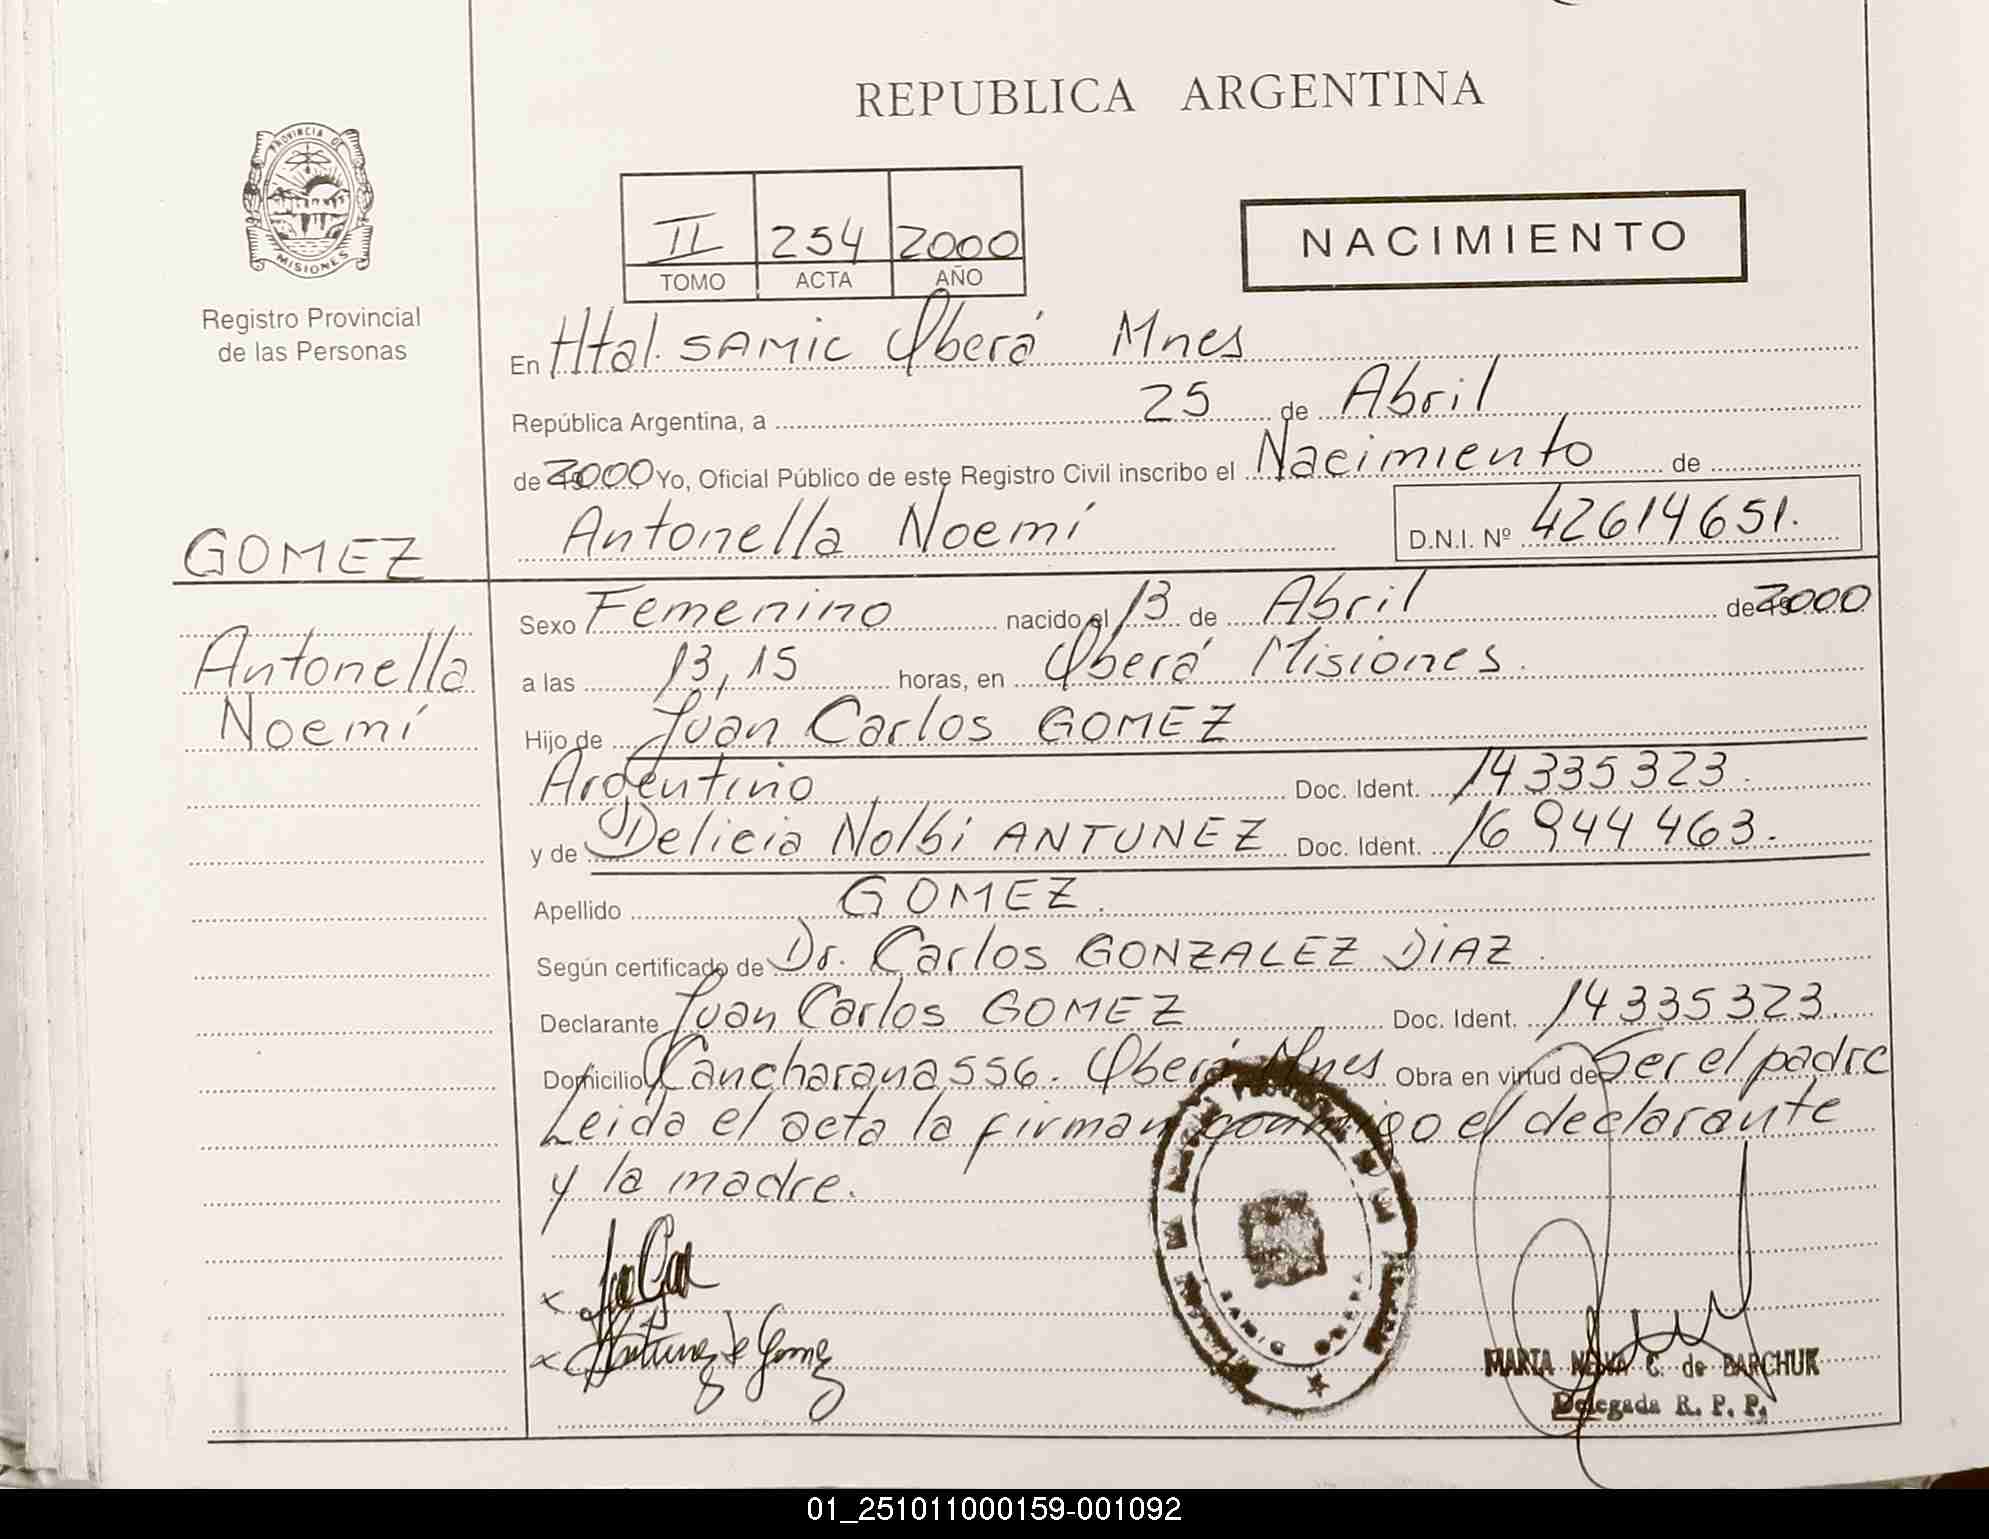 REPUBLICA ARGENTINA
PROVINCIA DE
MISIONES
Registro Provincial
de las Personas
II 254 2000
TOMO ACTA AÑO
NACIMIENTO
En Htal. SAMIC Oberá Mnes
República Argentina, a 25 de Abril
de 2000 Yo, Oficial Público de este Registro Civil inscribo el Nacimiento de
Antonella Noemí D.N.I. Nº 42614651.
GOMEZ
Antonella
Noemí
Sexo Femenino nacido el 13 de Abril de 2000
a las 13,15 horas, en Oberá Misiones.
Hijo de Juan Carlos GOMEZ
Argentino Doc. Ident. 14335323.
y de Delicia Nolbi ANTUNEZ Doc. Ident. 16944463.
Apellido GOMEZ.
Según certificado de Dr. Carlos GONZALEZ DIAZ.
Declarante Juan Carlos GOMEZ Doc. Ident. 14335323.
Domicilio Cancharana 556. Oberá Mnes Obra en virtud de Ser el padre
Leida el acta la firman conmigo el declarante
y la madre.
x
x Antunez de Gomez
SAMIC OBERA
MARTA C. de BARCHUK
Delegada R. P. P.
01_251011000159-001092